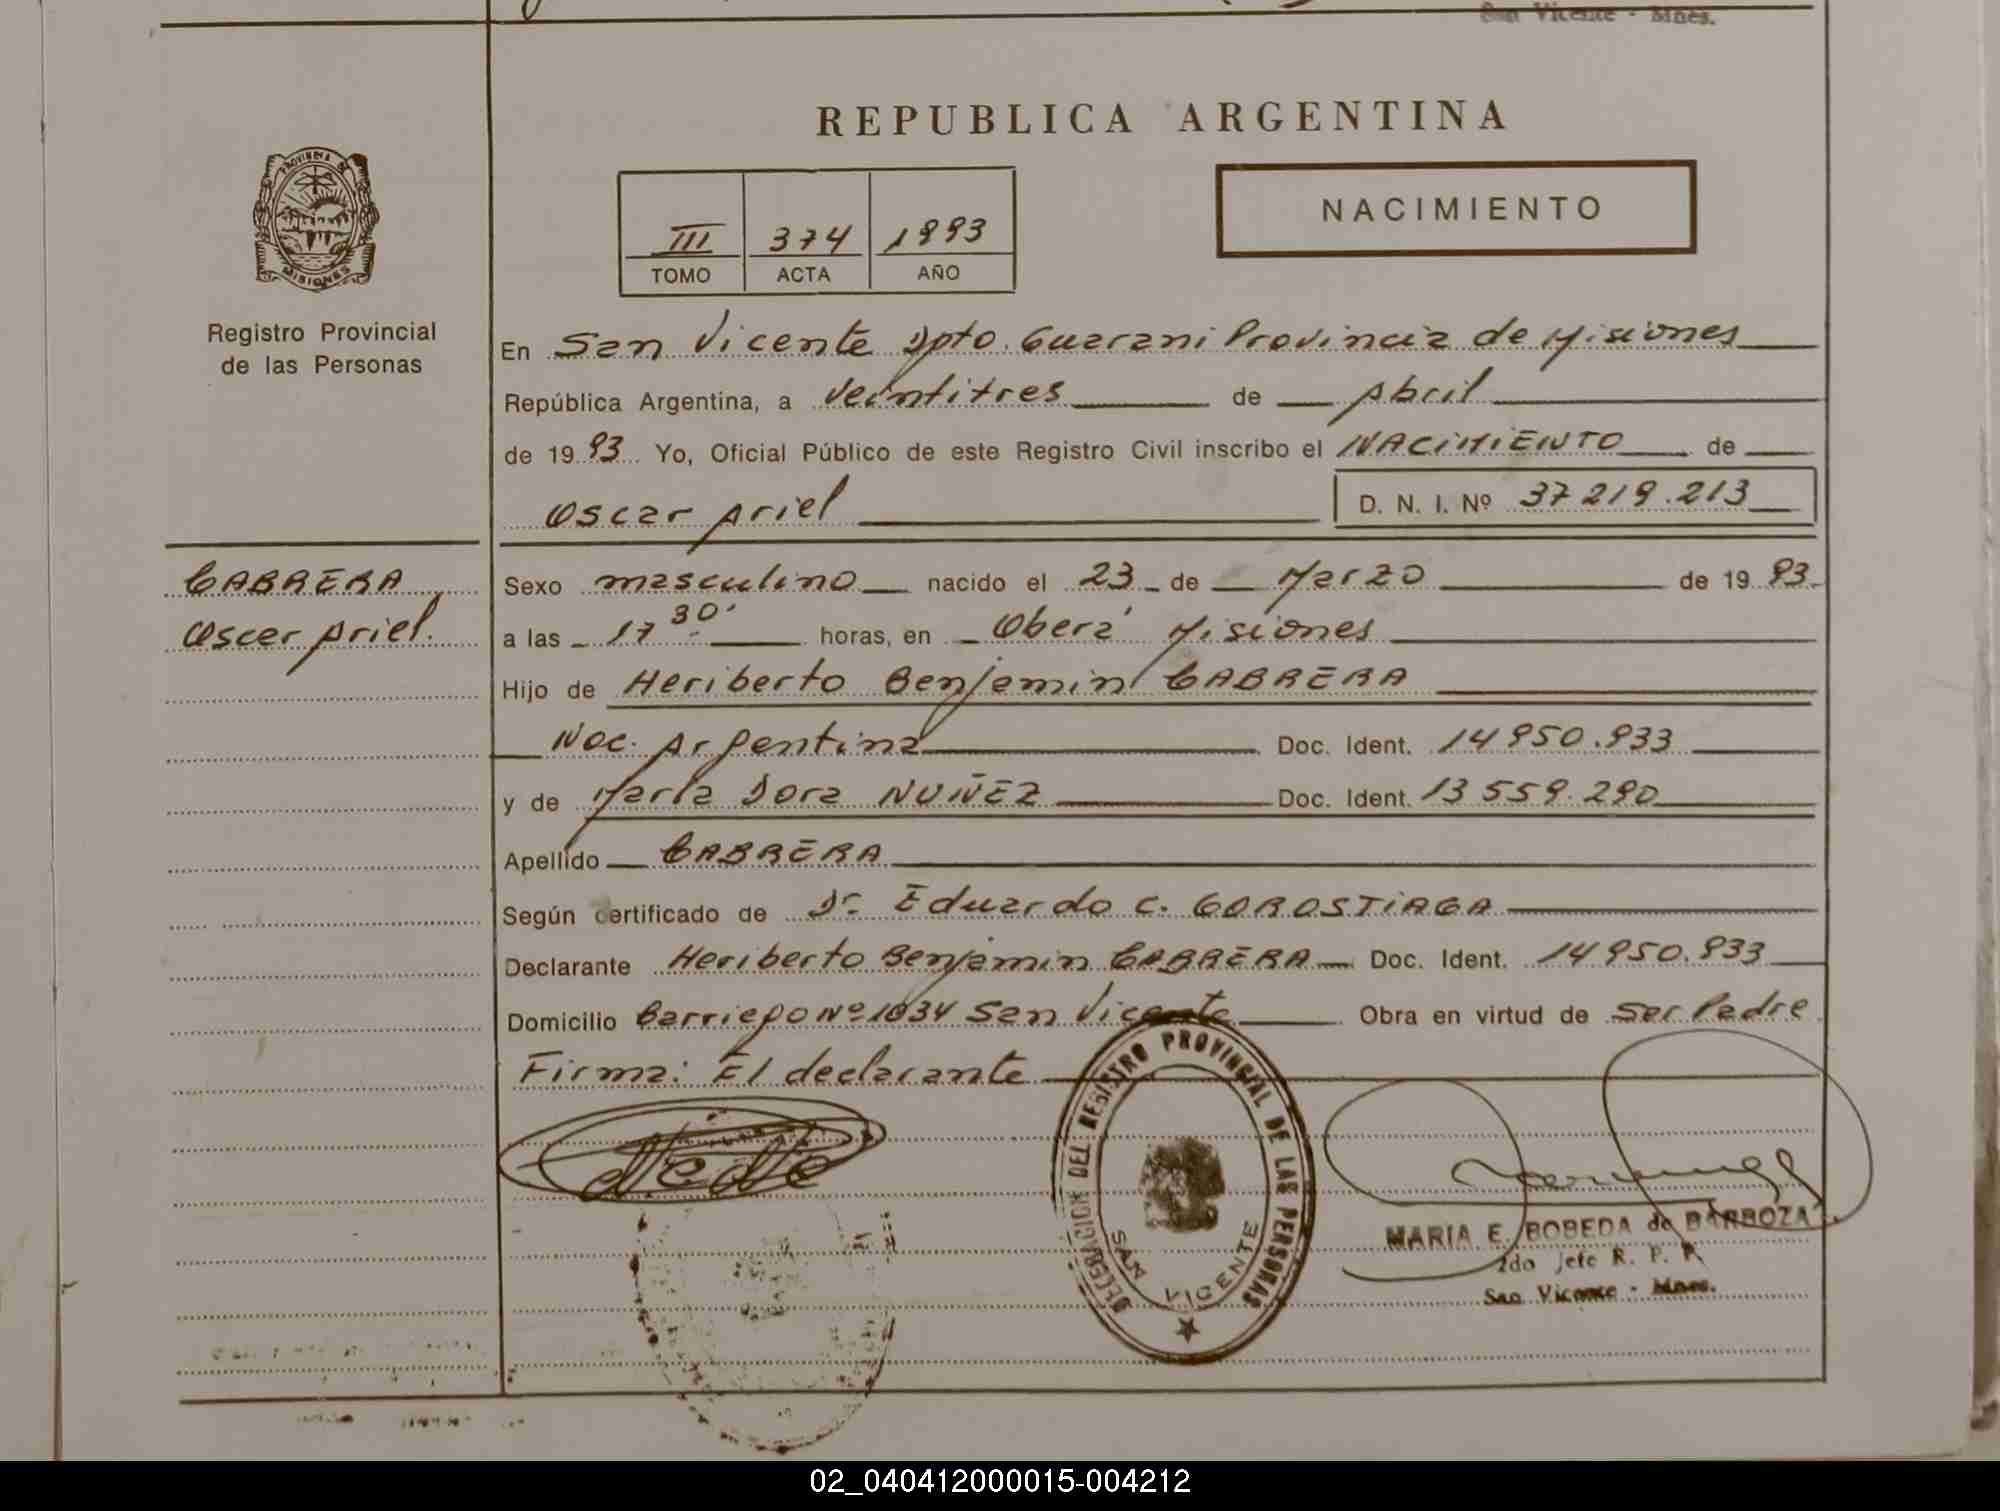 San Vicente - Mnes.
REPUBLICA ARGENTINA
PROVINCIA DE
MISIONES
Registro Provincial
de las Personas
III 374 1993
TOMO ACTA AÑO
NACIMIENTO
En San Vicente Dpto. Guarani Provincia de Misiones
República Argentina, a veintitres de Abril
de 1993 Yo, Oficial Público de este Registro Civil inscribo el NACIMIENTO de
Oscar Ariel D. N. I. Nº 37 219.213
CABRERA
Oscar Ariel.
Sexo masculino nacido el 23 de Marzo de 1993
a las 17 30' horas, en Oberá Misiones
Hijo de Heriberto Benjamin CABRERA
Nac. Argentina Doc. Ident. 14 950.933
y de Maria Dora NUÑEZ Doc. Ident. 13 559.290
Apellido CABRERA
Según certificado de Dr. Eduardo C. GOROSTIAGA
Declarante Heriberto Benjamin CABRERA Doc. Ident. 14 950.933
Domicilio Barrio Nº 1034 San Vicente Obra en virtud de Ser Padre
Firma: El declarante
DELEGACION DEL REGISTRO PROVINCIAL DE LAS PERSONAS
SAN VICENTE
MARIA E. BOBEDA de BARBOZA
2do Jefe R. P. P.
San Vicente - Mnes.
02_040412000015-004212